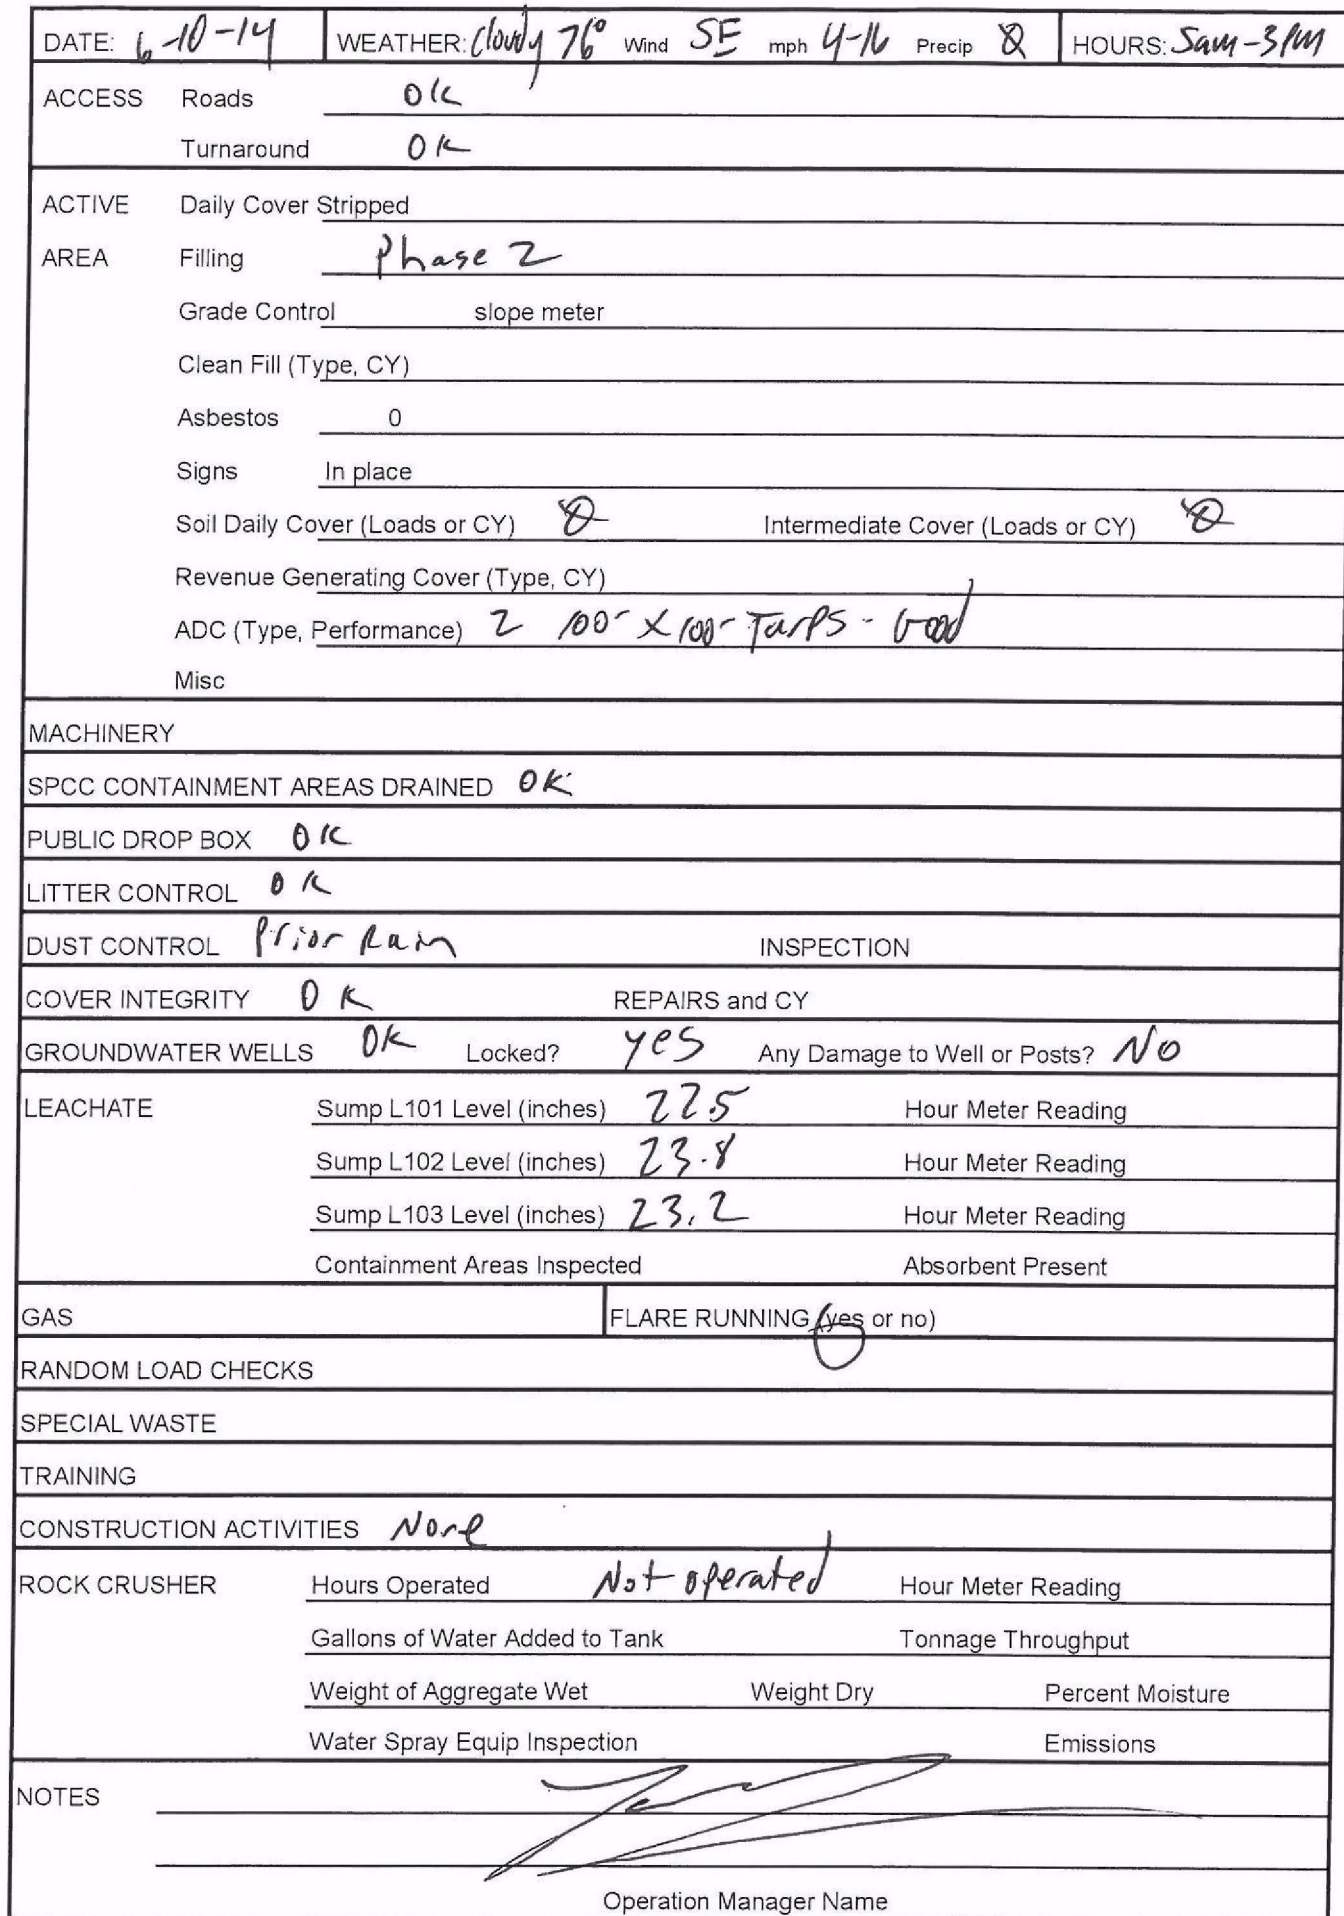 DATE: 6-10-14 WEATHER: Cloudy 76° Wind SE mph 4-16 Precip 0 HOURS: 5am-3PM
ACCESS Roads OK
Turnaround OK
ACTIVE Daily Cover Stripped
AREA Filling Phase 2
Grade Control slope meter
Clean Fill (Type, CY)
Asbestos 0
Signs In place
Soil Daily Cover (Loads or CY) 0 Intermediate Cover (Loads or CY) 0
Revenue Generating Cover (Type, CY)
ADC (Type, Performance) 2 100- x 100- Tarps - Good
Misc
MACHINERY
SPCC CONTAINMENT AREAS DRAINED OK
PUBLIC DROP BOX OK
LITTER CONTROL OK
DUST CONTROL Prior Rain INSPECTION
COVER INTEGRITY OK REPAIRS and CY
GROUNDWATER WELLS OK Locked? yes Any Damage to Well or Posts? NO
LEACHATE Sump L101 Level (inches) 22.5 Hour Meter Reading
Sump L102 Level (inches) 23.8 Hour Meter Reading
Sump L103 Level (inches) 23.2 Hour Meter Reading
Containment Areas Inspected Absorbent Present
GAS FLARE RUNNING (yes or no)
RANDOM LOAD CHECKS
SPECIAL WASTE
TRAINING
CONSTRUCTION ACTIVITIES None
ROCK CRUSHER Hours Operated Not operated Hour Meter Reading
Gallons of Water Added to Tank Tonnage Throughput
Weight of Aggregate Wet Weight Dry Percent Moisture
Water Spray Equip Inspection Emissions
NOTES
Operation Manager Name